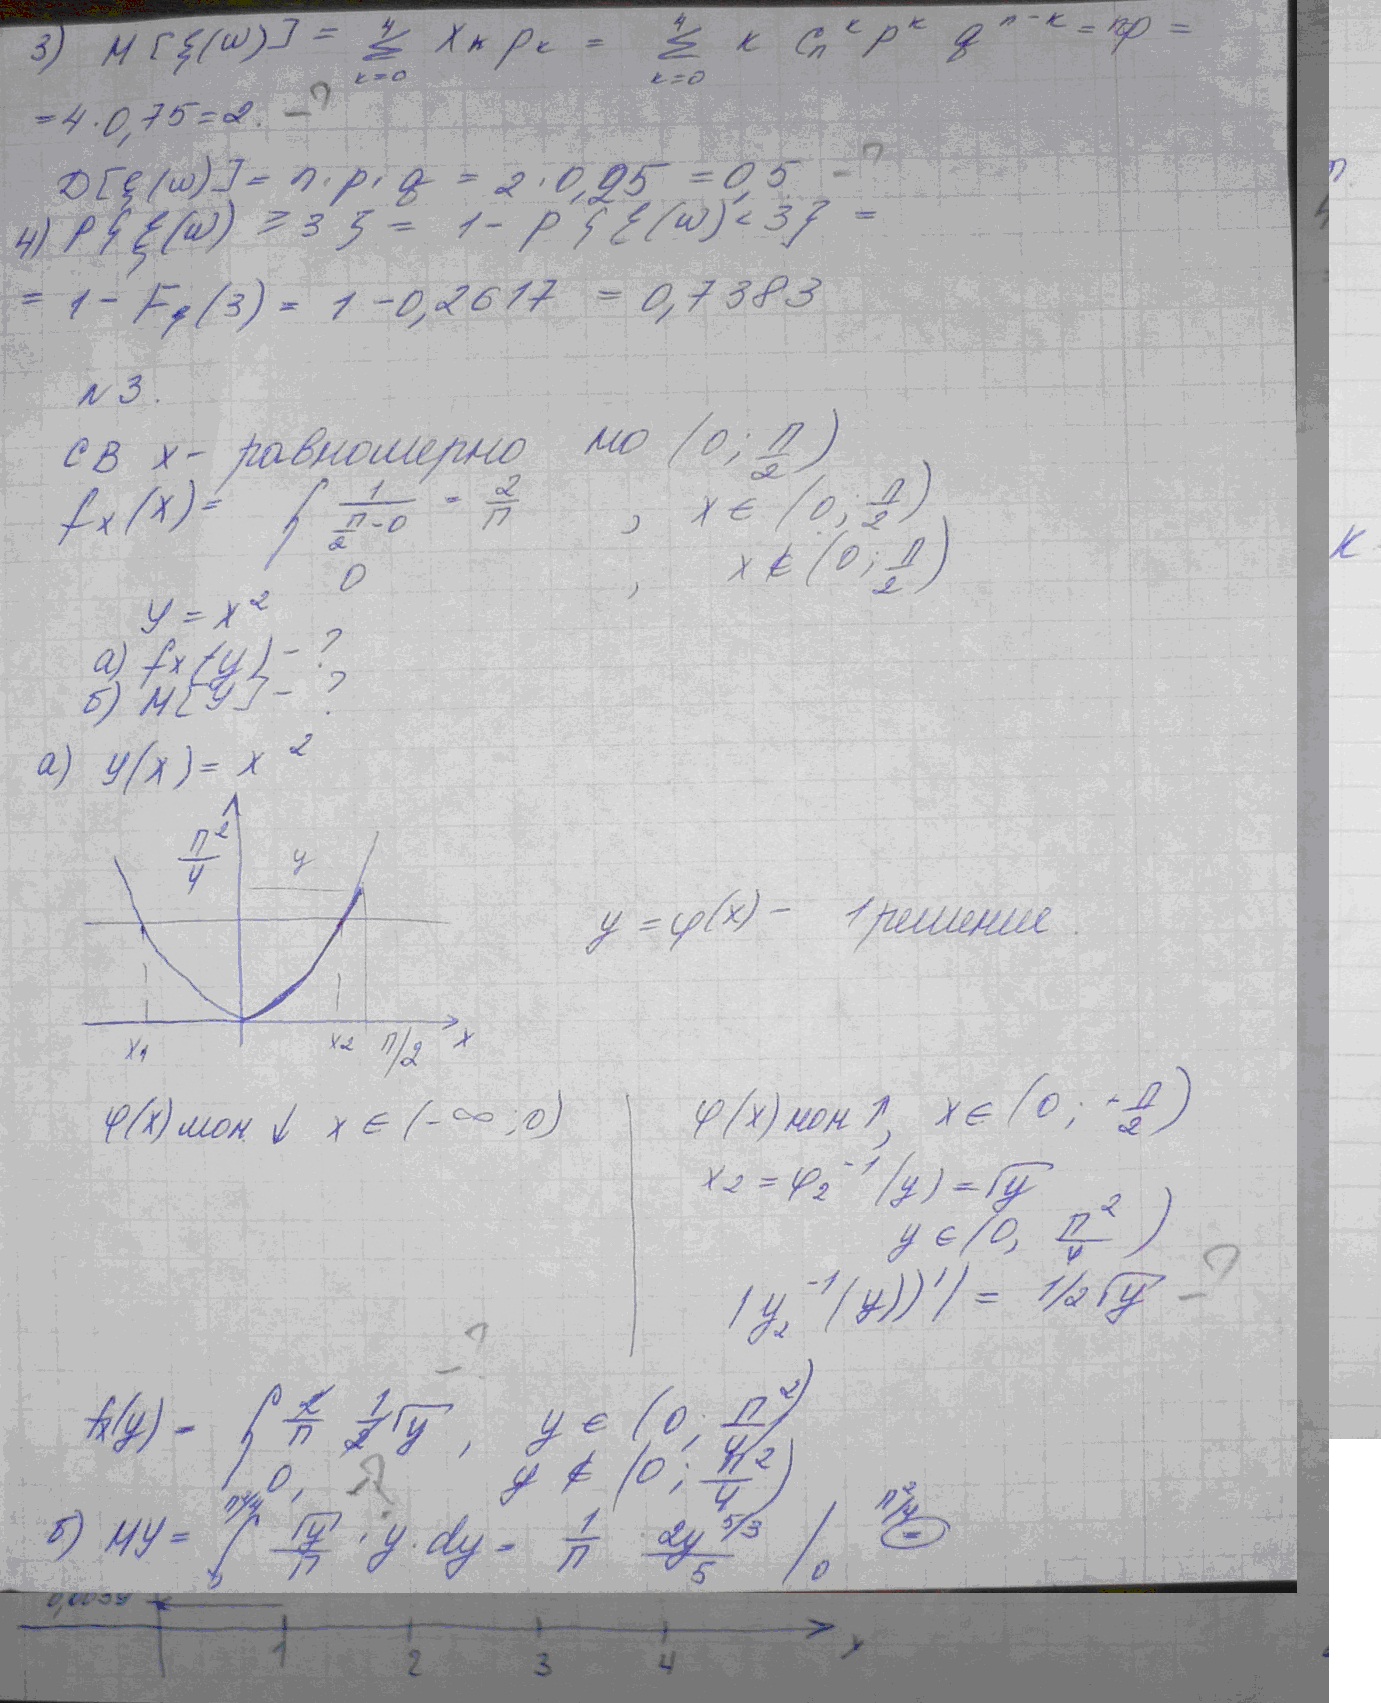 3) M[ξ(ω)] = Σ_{k=0}^{4} x_k p_k = Σ_{k=0}^{4} k C_n^k p^k q^{n-k} = np =
= 4·0,75 = 2. -?
D[ξ(ω)] = n·p·q = 2·0,25 = 0,5 -?
4) P{ξ(ω) ≥ 3} = 1 - P{ξ(ω) < 3} =
= 1 - F_ξ(3) = 1 - 0,2617 = 0,7383
N3.
СВ X - равномерно на (0; π/2)
f_x(x) = { 1/(π/2 - 0) = 2/π , x ∈ (0; π/2)
0 , x ∉ (0; π/2)
y = x²
а) f_x(y) - ?
б) M[y] - ?
а) y(x) = x²
π²/4
y
y = φ(x) - 1 решение.
x₁ x₂ π/2 x
φ(x) мон ↓ x ∈ (-∞; 0)
φ(x) мон ↑, x ∈ (0; -π/2)
x₂ = φ₂⁻¹(y) = √y
y ∈ (0, π²/4)
|y₂⁻¹(y))'| = 1/2√y -?
-?
f_x(y) = { 2/π 1/2 √y , y ∈ (0; π²/4)
0, y ∉ (0; π²/4)
-?
б) MY = ∫_0^{π²/4} √y/π · y · dy = 1/π 2y^{5/3}/5 |_0^{π²/4} =
1 2 3 4 x